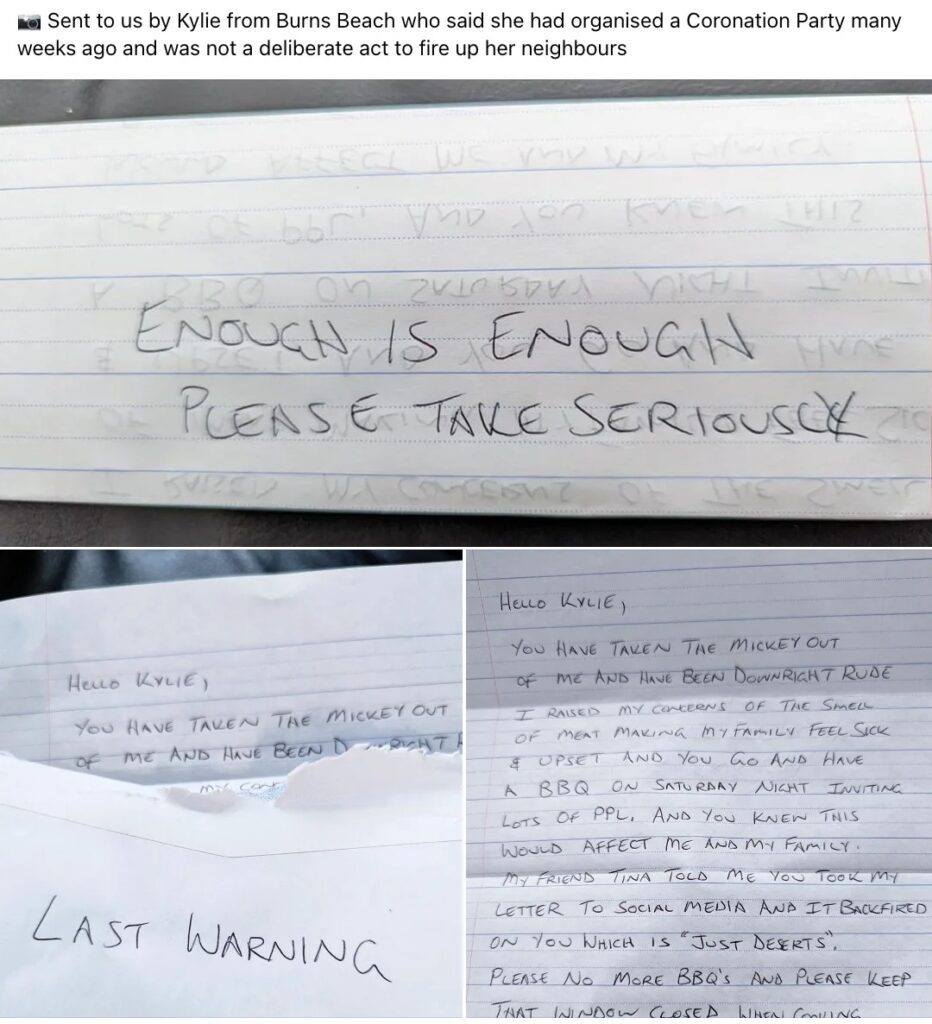 📷 Sent to us by Kylie from Burns Beach who said she had organised a Coronation Party many
weeks ago and was not a deliberate act to fire up her neighbours
ENOUGH IS ENOUGH
PLEASE TAKE SERIOUSLY
HELLO KYLIE,
YOU HAVE TAKEN THE MICKEY OUT
OF ME AND HAVE BEEN
MY
LAST WARNING
HELLO KYLIE,
YOU HAVE TAKEN THE MICKEY OUT
OF ME AND HAVE BEEN DOWNRIGHT RUDE
I RAISED MY CONCERNS OF THE SMELL
OF MEAT MAKING MY FAMILY FEEL SICK
& UPSET AND YOU GO AND HAVE
A BBQ ON SATURDAY NIGHT INVITING
LOTS OF PPL, AND YOU KNEW THIS
WOULD AFFECT ME AND MY FAMILY.
MY FRIEND TINA TOLD ME YOU TOOK MY
LETTER TO SOCIAL MEDIA AND IT BACKFIRED
ON YOU WHICH IS "JUST DESERTS".
PLEASE NO MORE BBQ'S AND PLEASE KEEP
THAT WINDOW CLOSED WHEN COOKING